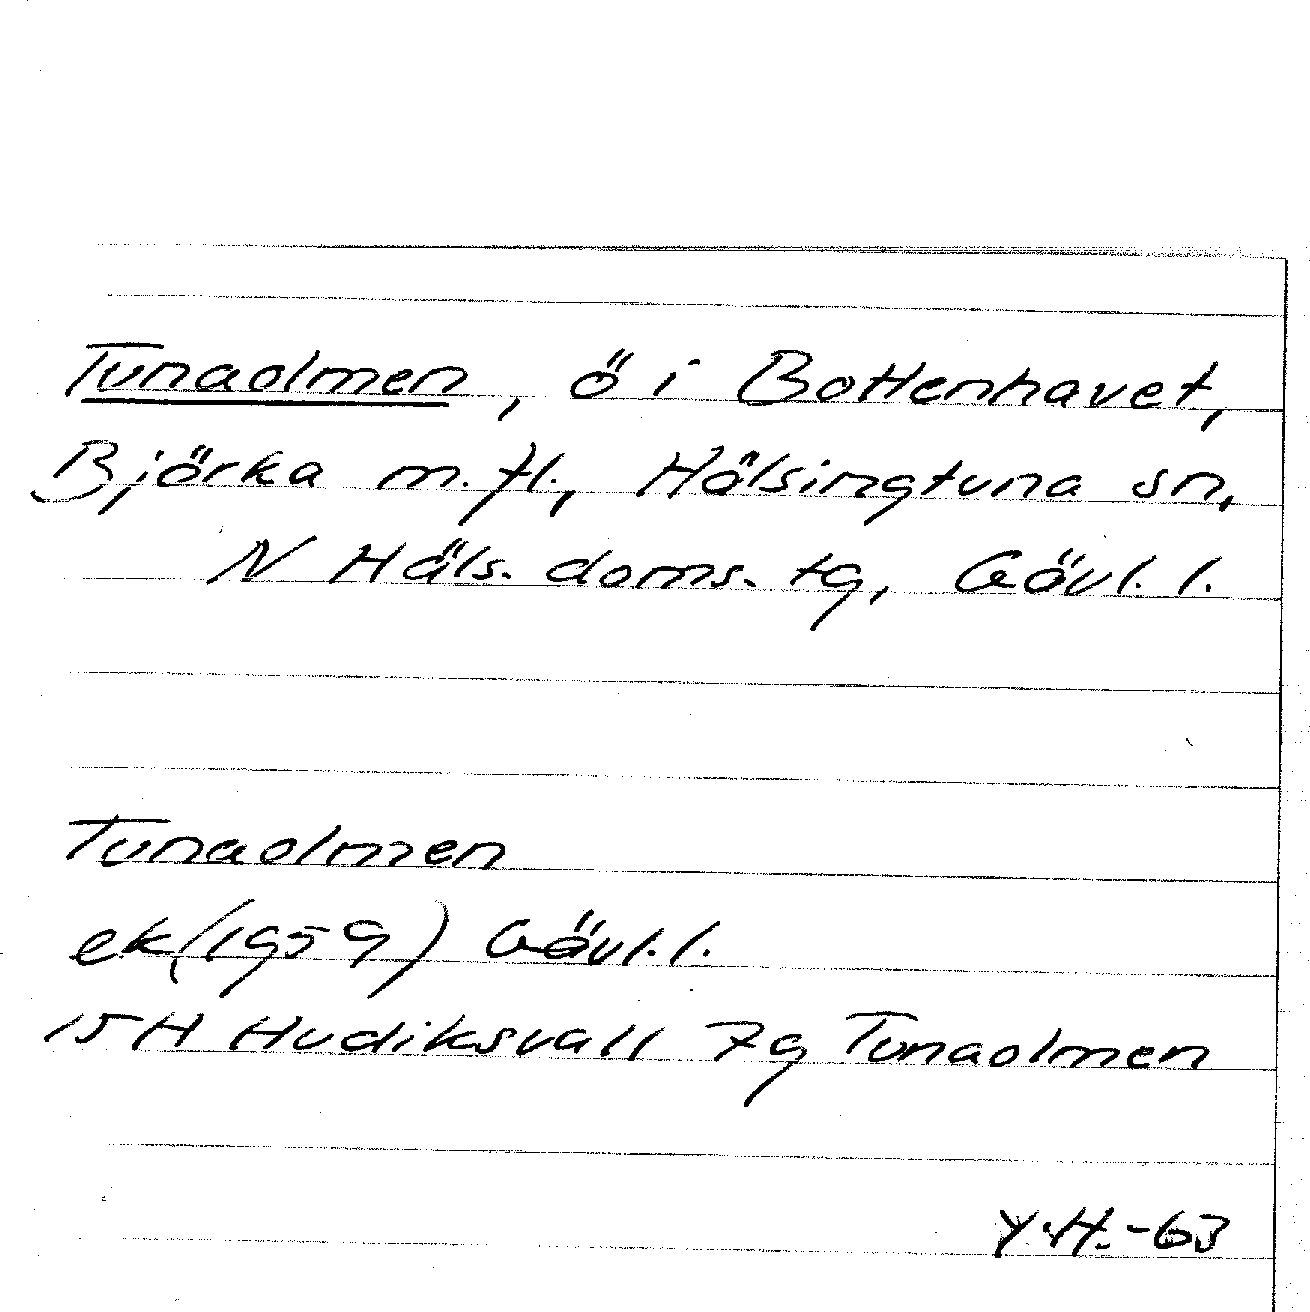 Tunaolmen, ö i Bottenhavet,
Björka m.fl., Hälsingtuna sn,
N Häls. doms. tg, Gävl. l.
Tunaolmen
ek (1959) Gävl. l.
15H Hudiksvall 7g Tunaolmen
Y.H.-63